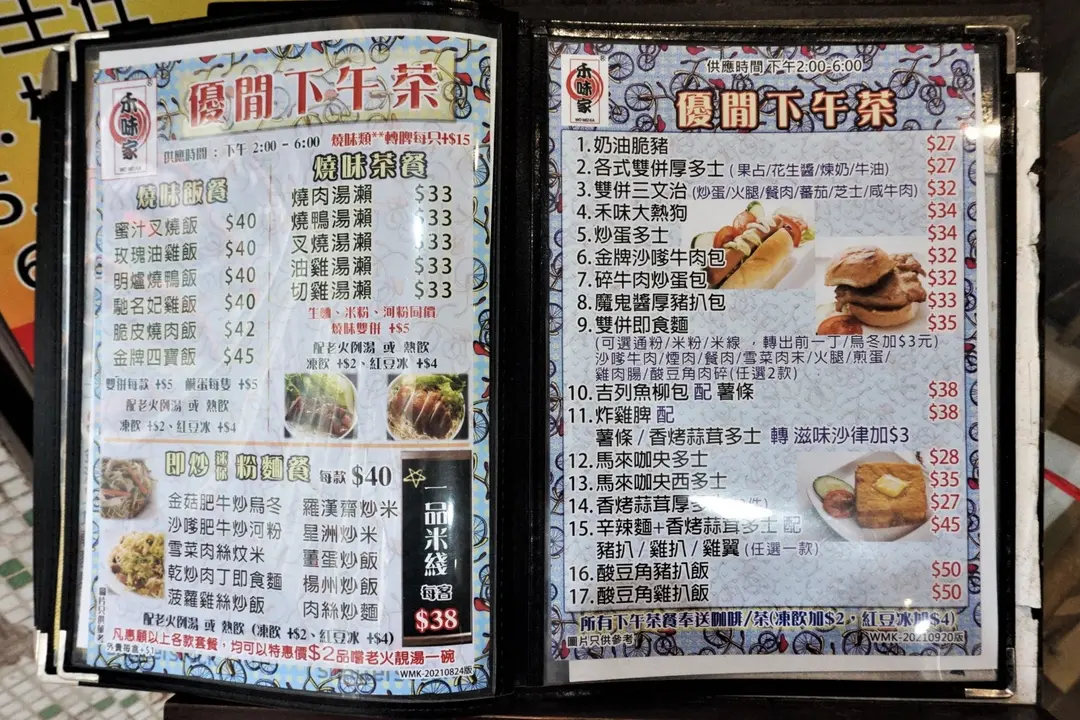 禾味家
優閒下午茶
供應時間：下午 2:00 - 6:00
燒味類**轉髀每只+$15
燒味飯餐
蜜汁叉燒飯 $40
玫瑰油雞飯 $40
明爐燒鴨飯 $40
馳名妃雞飯 $40
脆皮燒肉飯 $42
金牌四寶飯 $45
雙併每款 +$5 鹹蛋每隻 +$5
配老火例湯 或 熱飲
凍飲 +$2、紅豆冰 +$4
燒味茶餐
燒肉湯瀨 $33
燒鴨湯瀨 $33
叉燒湯瀨 $33
油雞湯瀨 $33
切雞湯瀨 $33
生麵、米粉、河粉同價
燒味雙併 +$5
配老火例湯 或 熱飲
凍飲 +$2、紅豆冰 +$4
即炒 粉麵餐 每款 $40
金菇肥牛炒烏冬
沙嗲肥牛炒河粉
雪菜肉絲炆米
乾炒肉丁即食麵
菠蘿雞絲炒飯
羅漢齋炒米
星洲炒米
薑蛋炒飯
楊州炒飯
肉絲炒麵
一品米綫
每客
$38
配老火例湯 或 熱飲 (凍飲 +$2、紅豆冰 +$4)
凡惠顧以上各款套餐，均可以特惠價$2品嚐老火靚湯一碗
圖片只供參考
外賣每盒+$1
WMK-20210824版
禾味家
供應時間 下午2:00-6:00
優閒下午茶
1. 奶油脆豬 $27
2. 各式雙併厚多士 (果占/花生醬/煉奶/牛油) $27
3. 雙併三文治 (炒蛋/火腿/餐肉/蕃茄/芝士/咸牛肉) $32
4. 禾味大熱狗 $34
5. 炒蛋多士 $34
6. 金牌沙嗲牛肉包 $32
7. 碎牛肉炒蛋包 $32
8. 魔鬼醬厚豬扒包 $33
9. 雙併即食麵 $35
(可選通粉/米粉/米線 ，轉出前一丁/烏冬加$3元)
沙嗲牛肉/煙肉/餐肉/雪菜肉末/火腿/煎蛋/
雞肉腸/酸豆角肉碎(任選2款)
10. 吉列魚柳包 配 薯條 $38
11. 炸雞髀 配 $38
薯條 / 香烤蒜茸多士 轉 滋味沙律加$3
12. 馬來咖央多士 $28
13. 馬來咖央西多士 $35
14. 香烤蒜茸厚多士 $27
15. 辛辣麵+香烤蒜茸多士 配 $45
豬扒 / 雞扒 / 雞翼 (任選一款)
16. 酸豆角豬扒飯 $50
17. 酸豆角雞扒飯 $50
所有下午茶餐奉送咖啡/茶(凍飲加$2，紅豆冰加$4)
圖片只供參考
WMK-20210920版